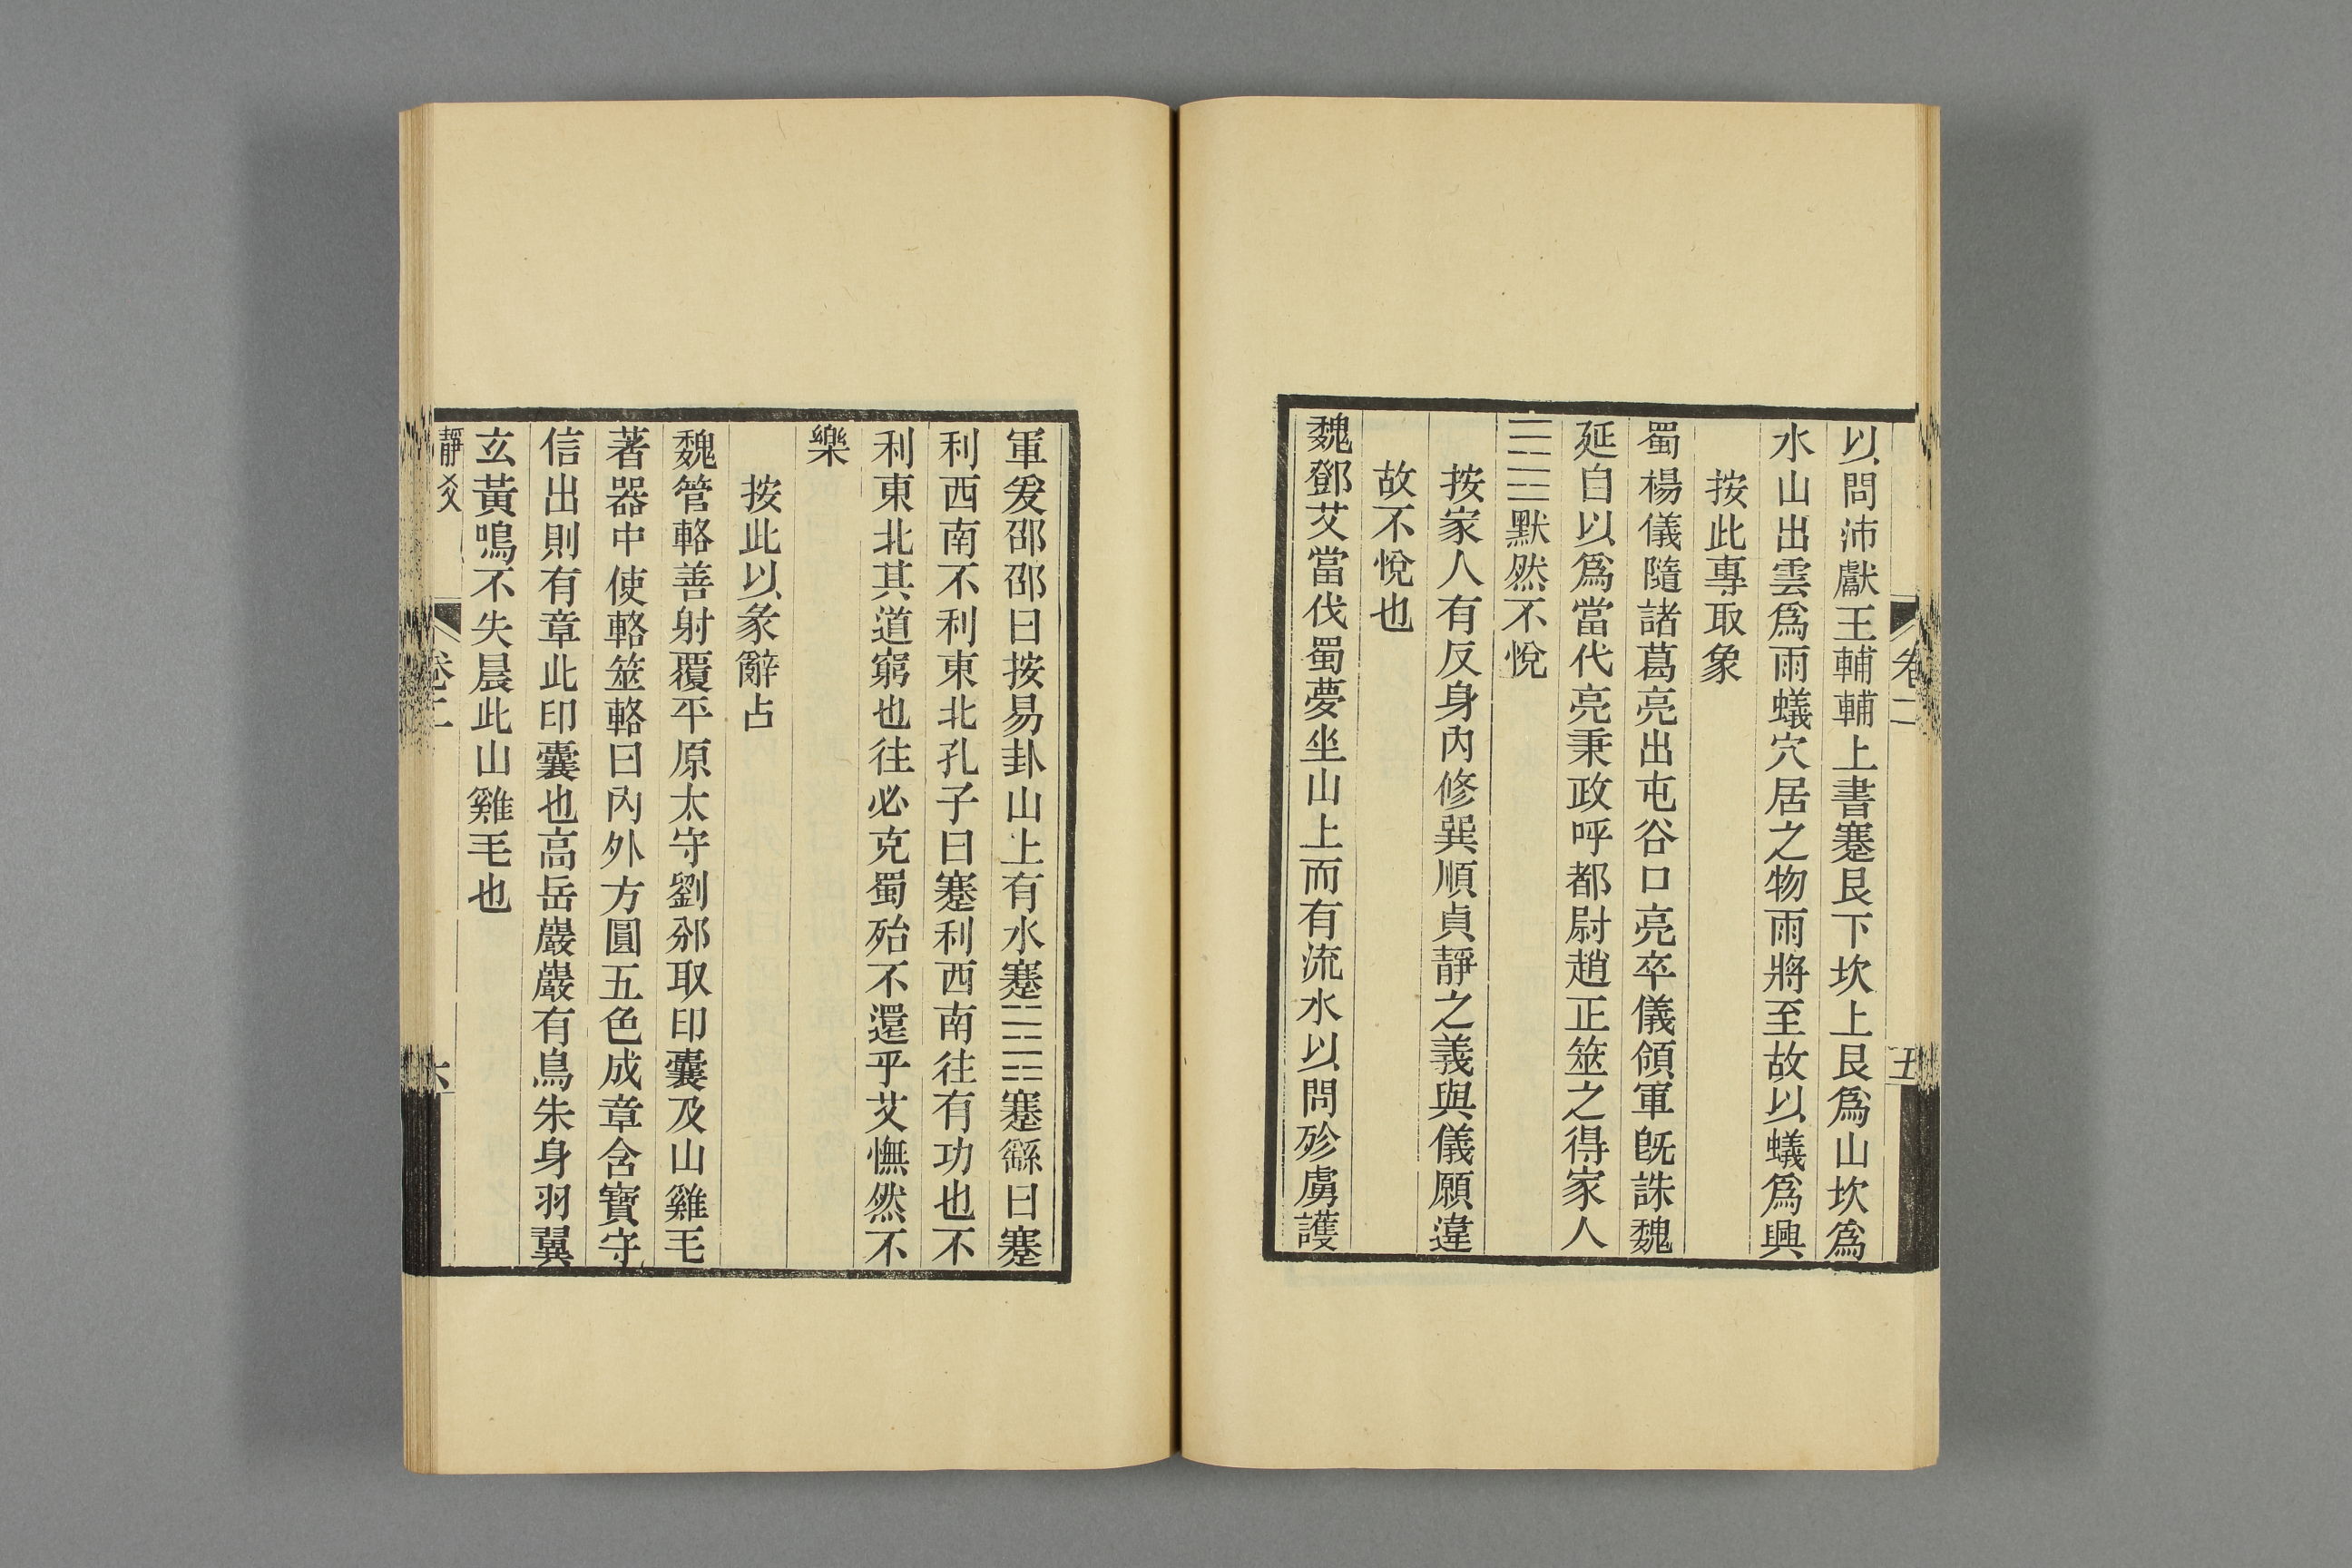 以問沛獻王輔輔上書蹇艮下坎上艮爲山坎爲
水山出雲爲雨蟻穴居之物雨將至故以蟻爲興
按此專取象
蜀楊儀隨諸葛亮出屯谷口亮卒儀領軍旣誅魏
延自以爲當代亮秉政呼都尉趙正筮之得家人
䷤默然不悅
按家人有反身內修巽順貞靜之義與儀願違
故不悅也
魏鄧艾當伐蜀夢坐山上而有流水以問殄虜護
卷二
五
軍爰邵邵曰按易卦山上有水蹇䷦蹇繇曰蹇
利西南不利東北孔子曰蹇利西南往有功也不
利東北其道窮也往必克蜀殆不還乎艾憮然不
樂
按此以彖辭占
魏管輅善射覆平原太守劉邠取印囊及山雞毛
著器中使輅筮輅曰內外方圓五色成章含寶守
信出則有章此印囊也高岳巖巖有鳥朱身羽翼
玄黃鳴不失晨此山雞毛也
靜爻
卷二
六